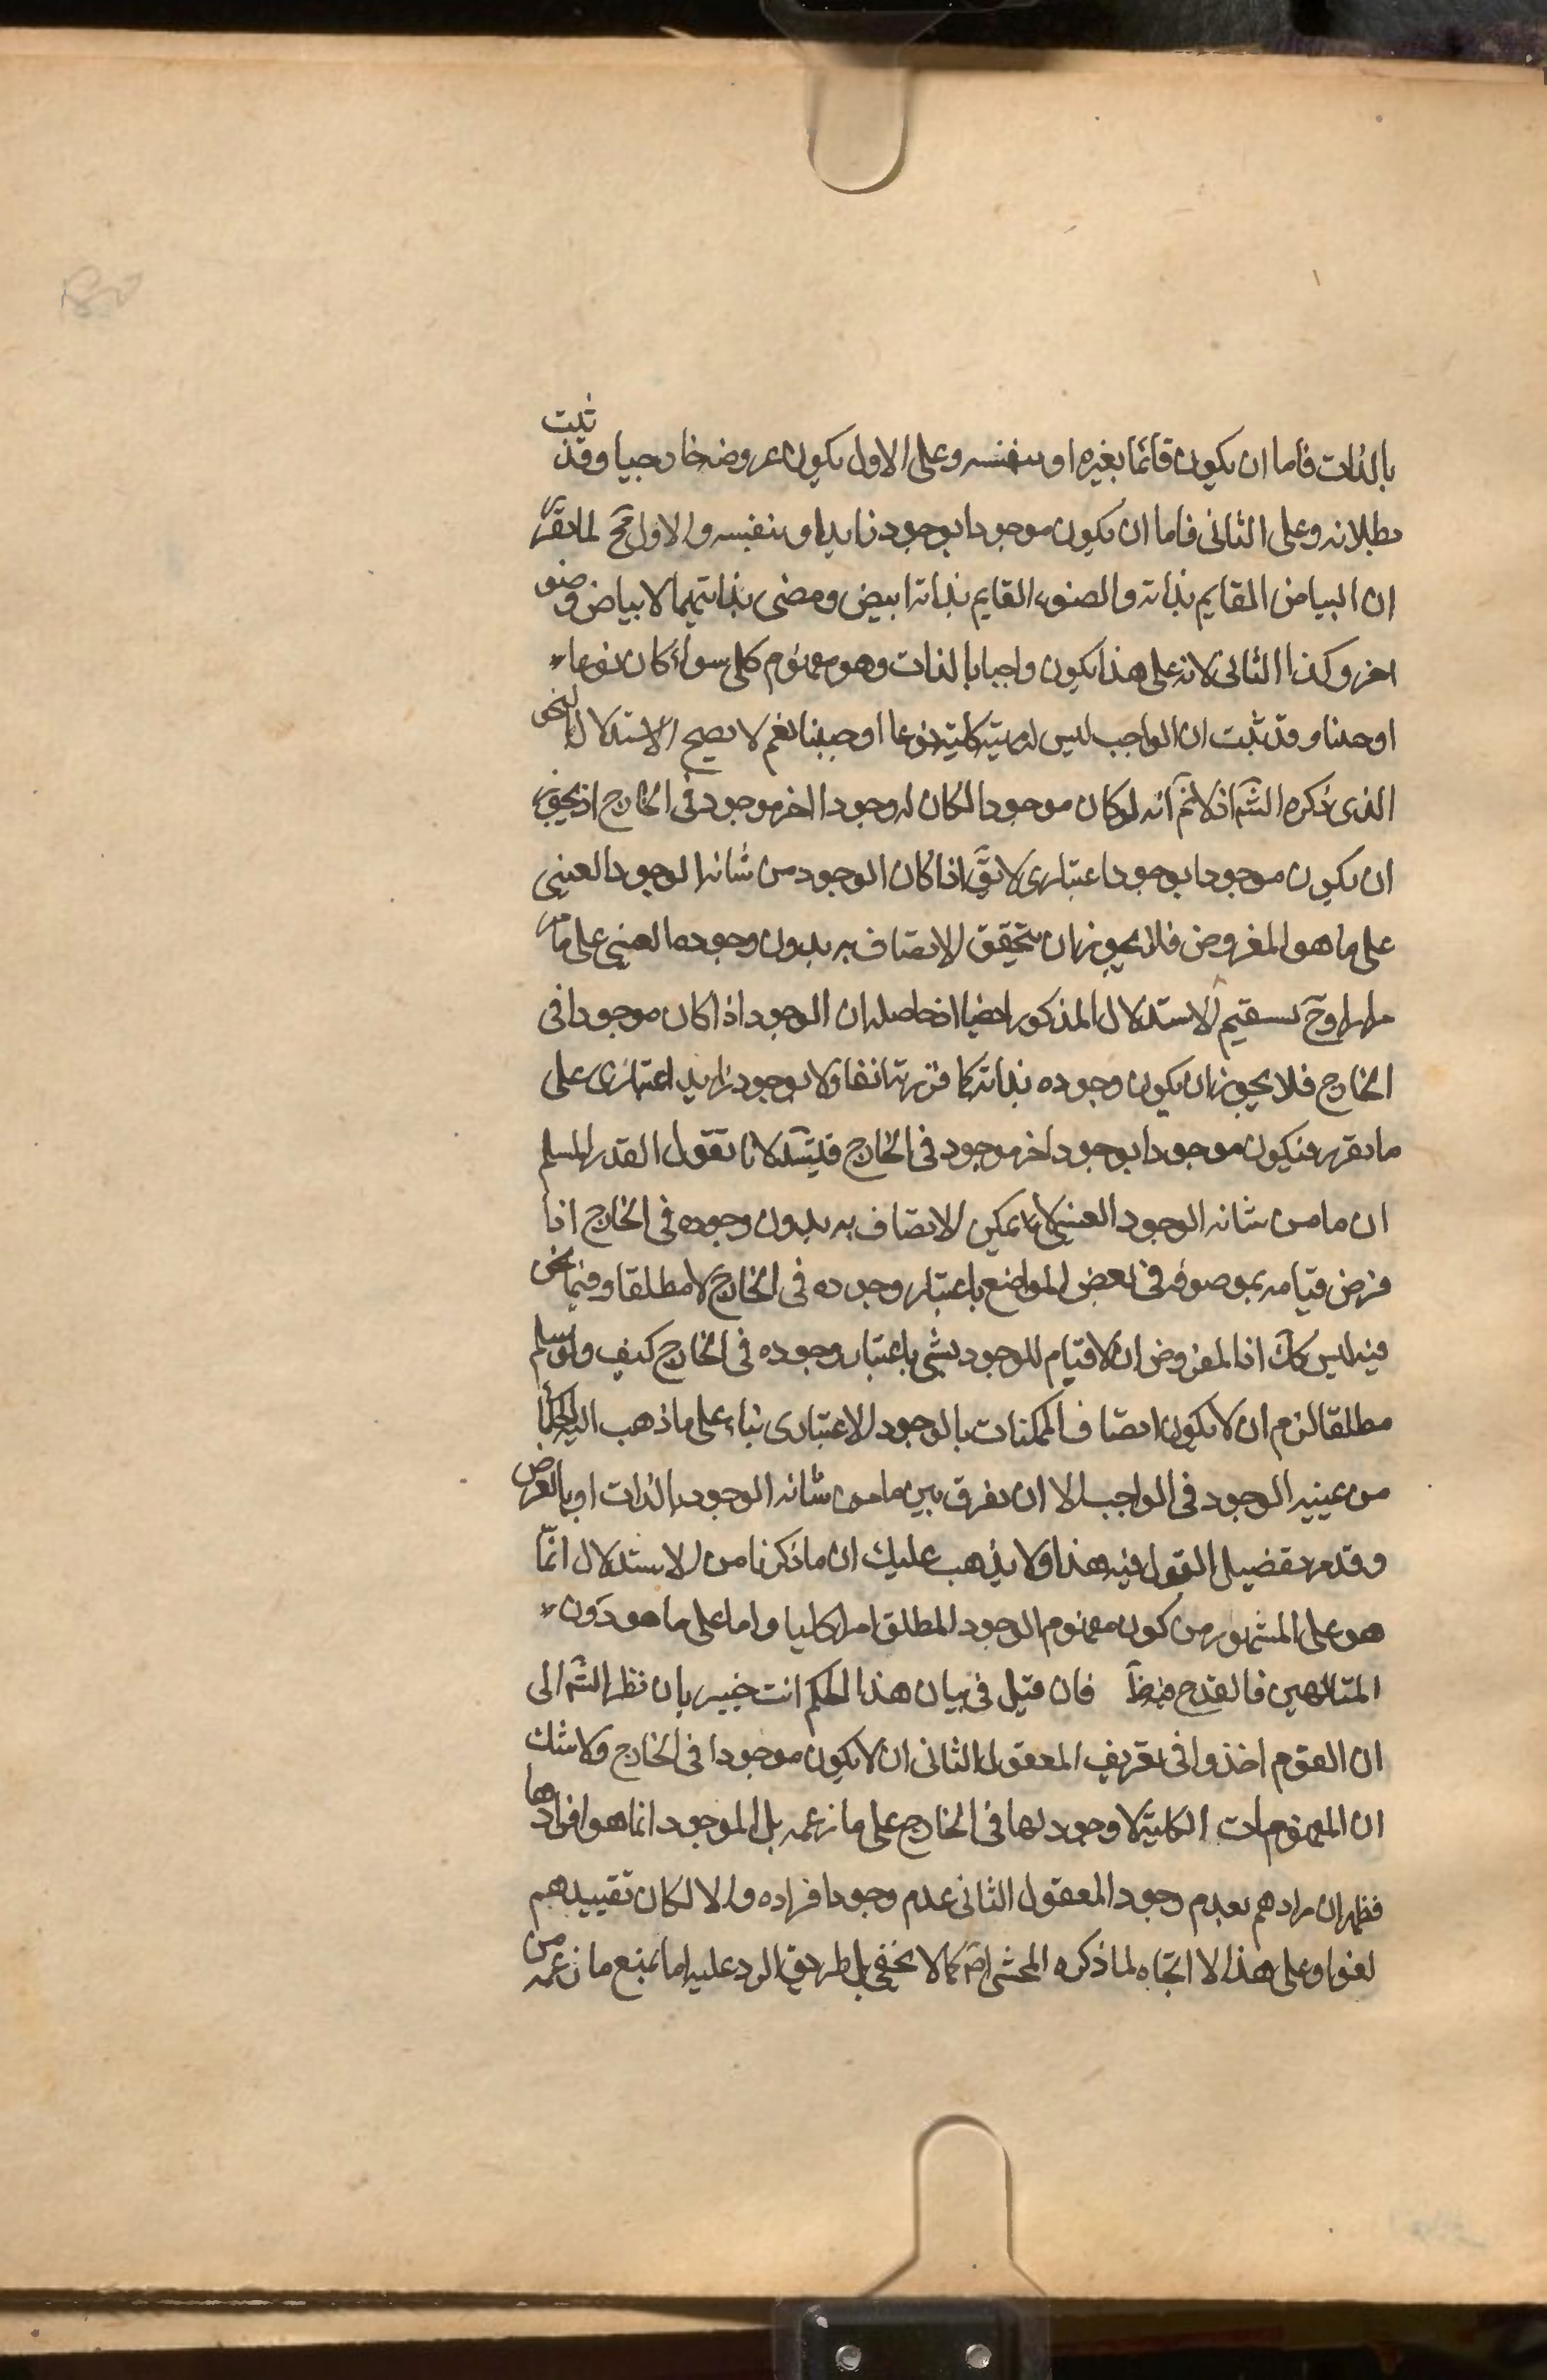 بالذات فاما ان يكون قائما بغيره او بنفسه وعلى الاول يكون عروضه خارجيا وقد ثبت
بطلانه وعلى الثانى فاما ان يكون موجودا بوجود زايد او بنفسه والاول مح لما تقرر
ان البياض القايم بذاته والضوء القايم بذاته ابيض ومضى بذاتيهما لا بياض وضو
اخر وكذا الثانى لانه على هذا يكون واجبا بالذات وهو مفهوم كلى سواء كان نوعا
او جنسا وقد ثبت ان الواجب ليس له مهية كلية نوعا او جنسا نعم لا يصح الاستدلال بالنحو
الذى ذكره الشم اذ لا نم انه لو كان موجودا لكان له وجود اخر موجود فى الخارج اذ يجوز
ان يكون موجودا بوجود اعتبارى لا يق اذا كان الوجود من شانه الوجود العينى
على ما هو المفروض فلا يجوز ان يتحقق الاتصاف به بدون وجوده العينى على ما مر
مرارا وح يستقيم الاستدلال المذكور ايضا اذ حاصله ان الوجود اذا كان موجودا فى
الخارج فلا يجوز ان يكون وجوده بذاته كما قررته انفا ولا بوجود زايد اعتبارى على
ما تقرر فيكون موجودا بوجود اخر موجود فى الخارج فيتسلسل لانا نقول القدر المسلم
ان ما من شانه الوجود العينى لا يمكن الاتصاف به بدون وجوده فى الخارج اذا
فرض قيامه بموصوفه فى بعض المواضع باعتبار وجوده فى الخارج لا مطلقا وفيما نحن
فيه ليس كك اذ المفروض ان لا قيام للوجود بشى باعتبار وجوده فى الخارج كيف ولو سلم
مطلقا لزم ان لا يكون اتصاف الممكنات بالوجود الاعتبارى بناء على ما ذهب اليه الحكماء
من عينية الوجود فى الواجب الا ان يفرق بين ما من شانه الوجود بالذات او بالعرض
وقد مر تفصيل القول فيه هذا ولا يذهب عليك ان ما ذكرنا من الاستدلال انما
هو على المشهور من كون مفهوم الوجود المطلق امرا كليا واما على ما هو ذوق
المتالهين فالقدح فان قيل فى بيان هذا الحكم انت خبير بان نظر الشم الى
ان القوم اخذوا فى تعريف المعقول الثانى ان لا يكون موجودا فى الخارج ولا شك
ان المفهومات الكلية لا وجود لها فى الخارج على ما زعمه بل الموجود انما هو افرادها
فظهر ان مرادهم بعدم وجود المعقول الثانى عدم وجود افراده والا لكان تقييدهم
لغوا وعلى هذا لا اتجاه لما ذكره المحشى اصم كما لا يخفى بل طريق الرد عليه اما بمنع ما زعمه من